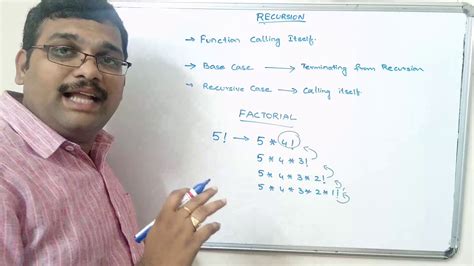 RECURSION
→ Function Calling Itself.
→ Base Case → Terminating from Recursion
→ Recursive Case → Calling itself
FACTORIAL
5! → 5 * 4!
5 * 4 * 3!
5 * 4 * 3 * 2!
5 * 4 * 3 * 2 * 1!